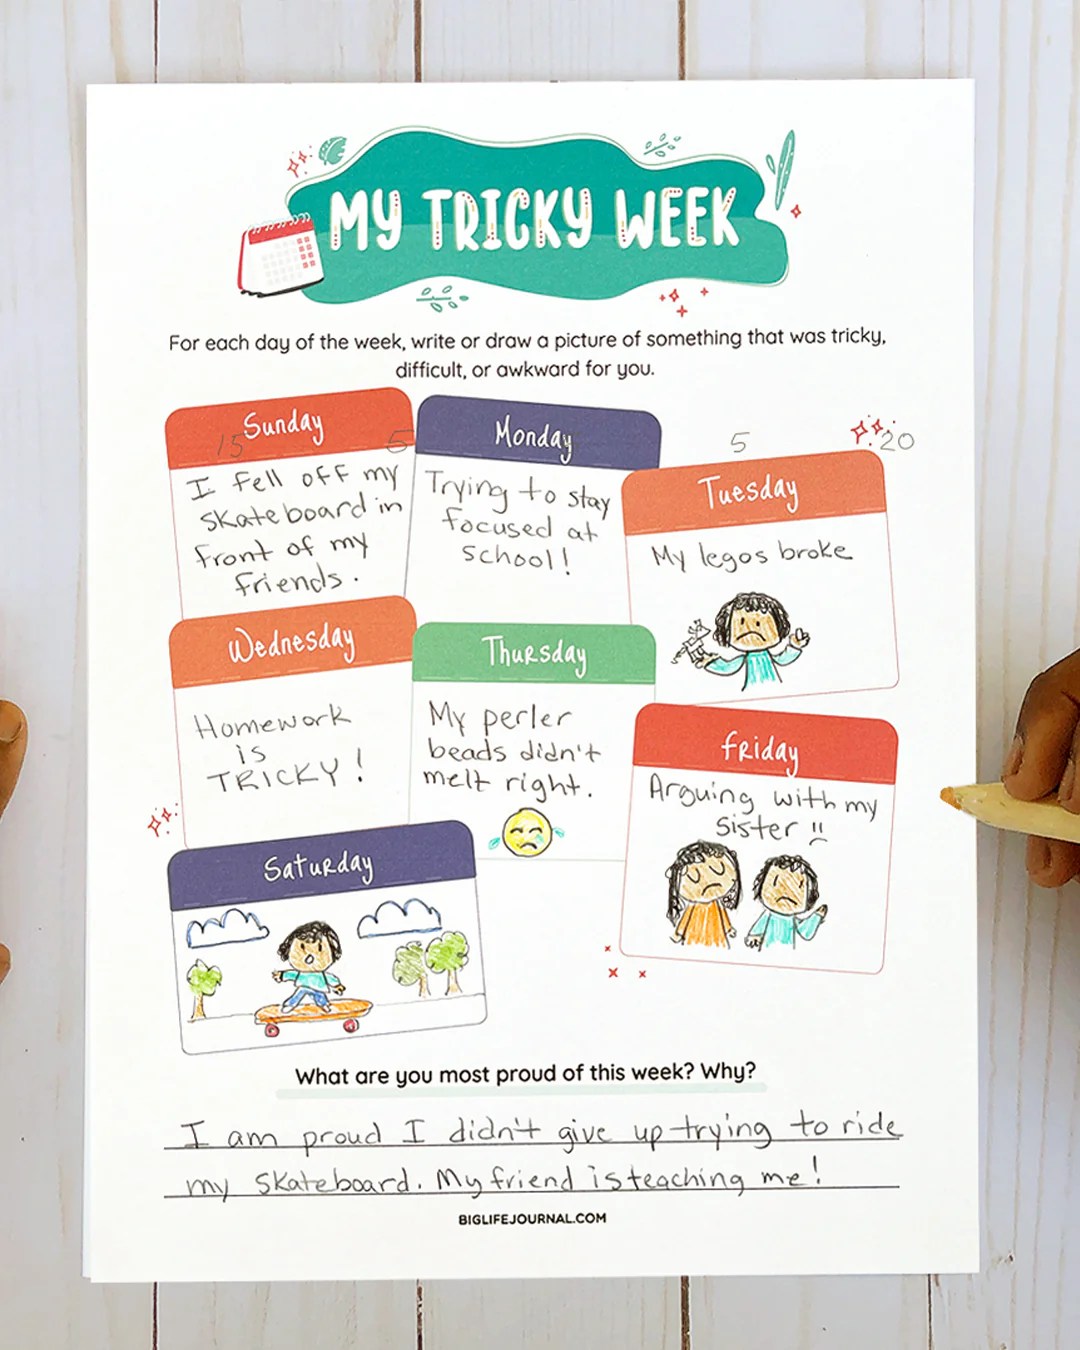 MY TRICKY WEEK
For each day of the week, write or draw a picture of something that was tricky,
difficult, or awkward for you.
Sunday
15
5
I fell off my
skateboard in
front of my
friends.
Monday
Trying to stay
focused at
school!
5
20
Tuesday
My legos broke
Wednesday
Homework
is
TRICKY!
Thursday
My perler
beads didn't
melt right.
Friday
Arguing with my
sister
Saturday
What are you most proud of this week? Why?
I am proud I didn't give up trying to ride
my skateboard. My friend is teaching me!
BIGLIFEJOURNAL.COM